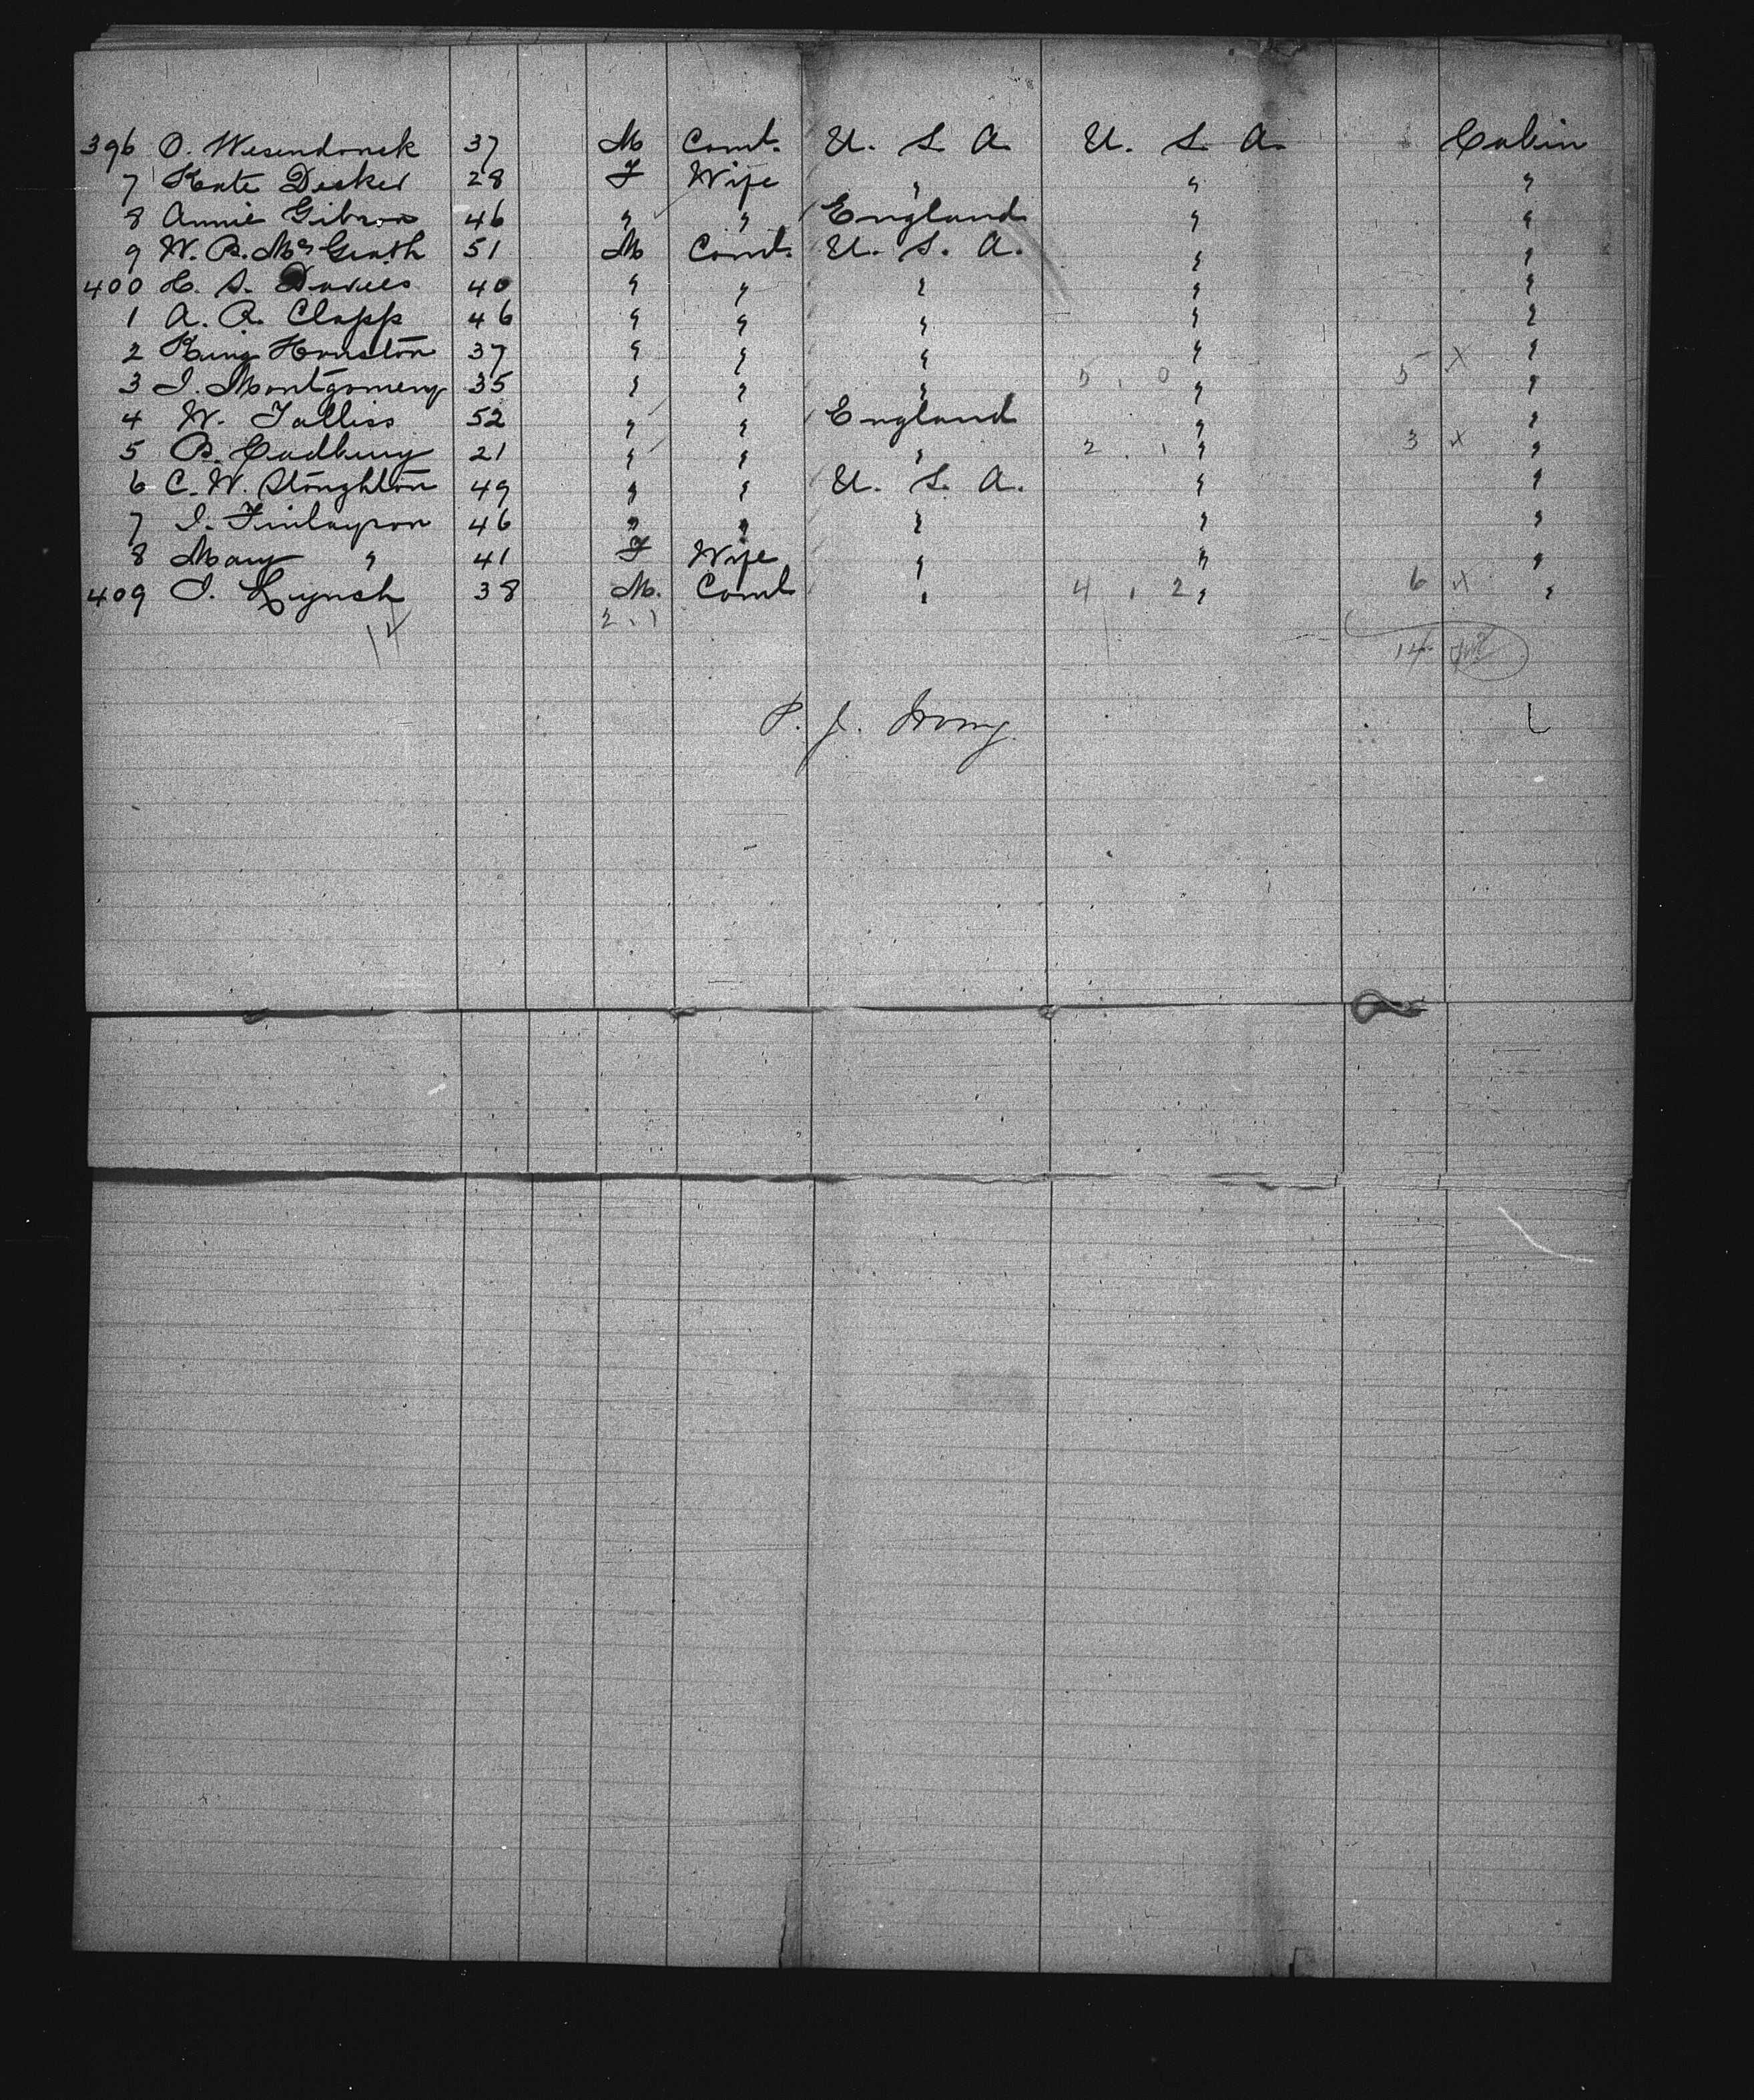 396 O. Wesendonck 37 M Comt. U. S. A. U. S. A. Cabin
7 Kate Decker 28 F Wife " " "
8 Annie Gibson 46 " " England " "
9 W. B. McGrath 51 M Comt. U. S. A. " "
400 H. S. Davies 40 " " " " "
1 A. R. Clapp 46 " " " " "
2 King Houston 37 " " " " "
3 I. Montgomery 35 " " " 5 , 0 " 5 X "
4 W. Talliss 52 " " England " "
5 B. Cadbury 21 " " " 2 . 1 " 3 X "
6 C. W. Stoughton 49 " " U. S. A. " "
7 I. Finlayson 46 " " " " "
8 Mary " 41 F Wife " " "
409 I. Lynch 38 M. Comt " 4 , 2 " 6 X "
14 2 , 1 14
P. J.